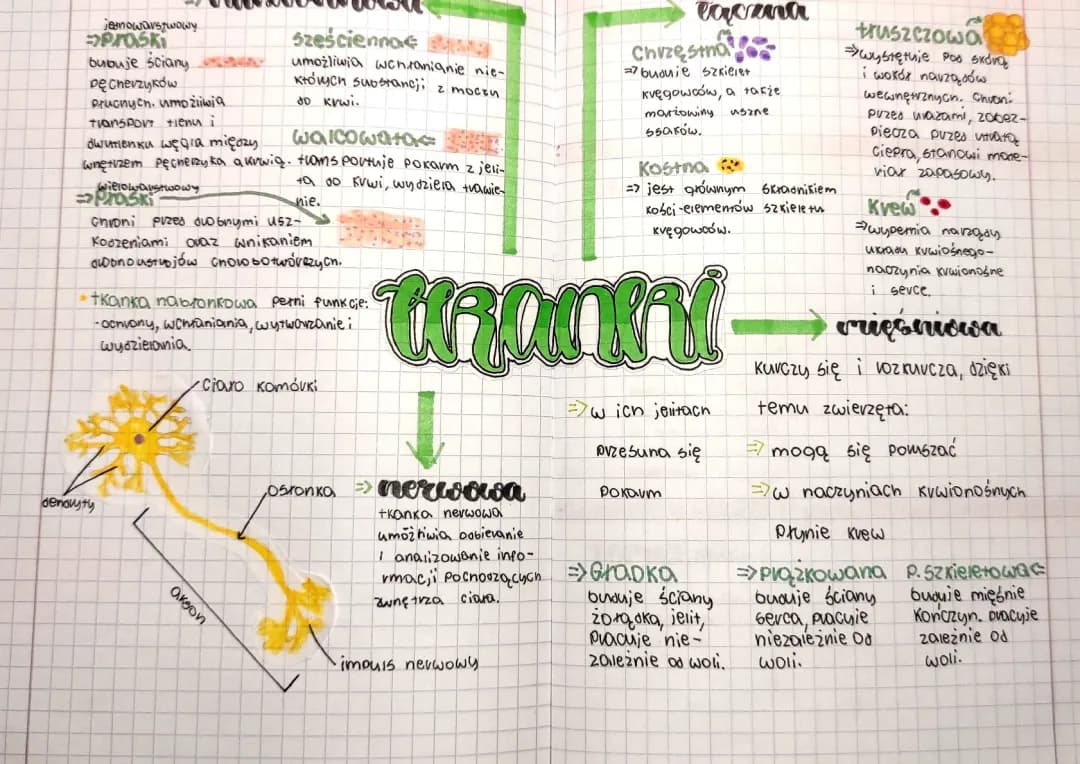 łączna
jednowarstwowy
płaski
buduje ściany
pęcherzyków
płucnych. umożliwia
transport tlenu i
dwutlenku węgla między
wnętrzem pęcherzyka a krwią.
wielowarstwowy
płaski
chroni przed drobnymi usz-
kodzeniami oraz wnikaniem
drobnoustrojów chorobotwórczych.
sześcienna
umożliwia wchłanianie nie-
których substancji z moczu
do krwi.
walcowata
transportuje pokarm z jeli-
ta do krwi, wydziela trawie-
nie.
• tkanka nabłonkowa pełni funkcje:
-ochrony, wchłaniania, wytwarzanie i
wydzielania.
chrzęstna
buduje szkielet
kręgowców, a także
małżowiny uszne
ssaków.
kostna
jest głównym składnikiem
kości-elementów szkieletu
kręgowców.
tłuszczowa
występuje pod skórą
i wokół narządów
wewnętrznych. Chroni
przed urazami, zabez-
piecza przed utratą
ciepła, stanowi mate-
riał zapasowy.
krew
wypełnia narządy
układu krwiośnego-
naczynia krwionośne
i serce.
tkanki
mięśniowa
kurczy się i rozkurcza, dzięki
temu zwierzęta:
mogą się poruszać
w naczyniach krwionośnych
płynie krew
w ich jelitach
przesuna się
pokarm
Gładka
buduje ściany
żołądka, jelit,
pracuje nie-
zależnie od woli.
prążkowana
buduje ściany
serca, pracuje
niezależnie od
woli.
p. szkieletowa
buduje mięśnie
kończyn. pracuje
zależnie od
woli.
nerwowa
tkanka nerwowa
umożliwia odbieranie
i analizowanie info-
rmacji pochoszących
zwnętrza ciała.
ciało komórki
dendryty
osłonka
akson
impuls nerwowy